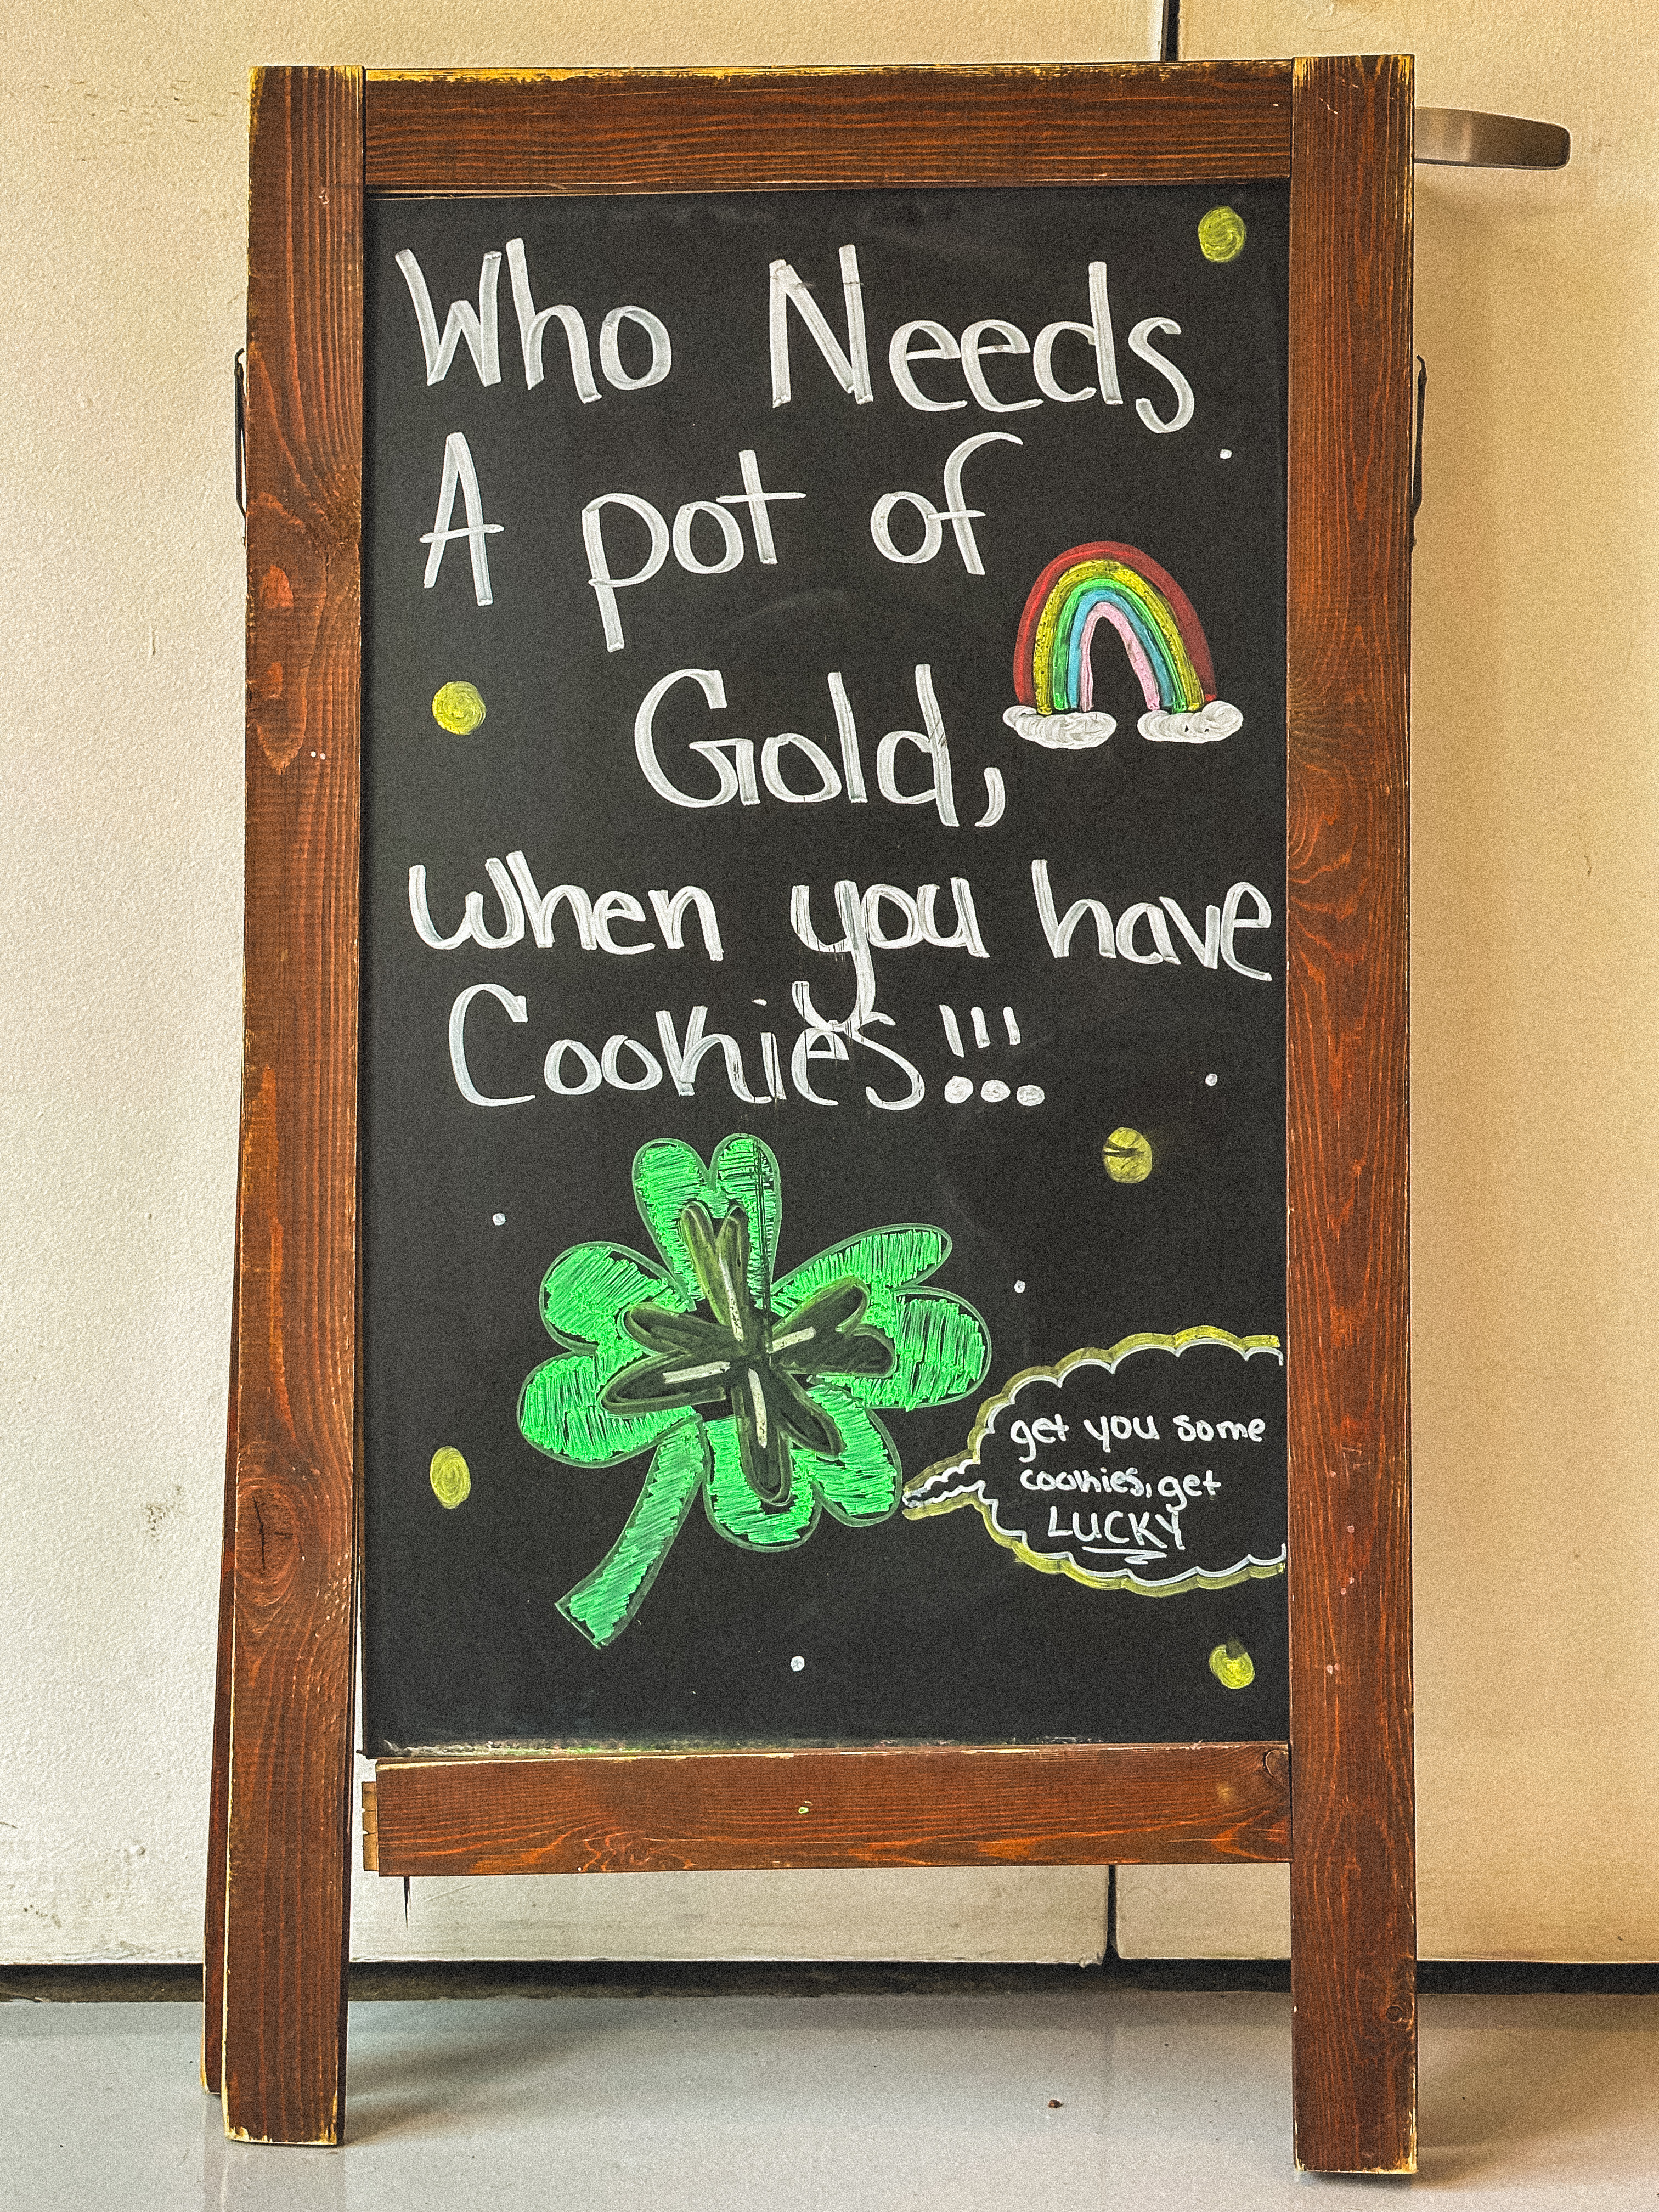 Who Needs
A pot of
Gold,
when you have
Cookies!!!
get you some
cookies, get
LUCKY